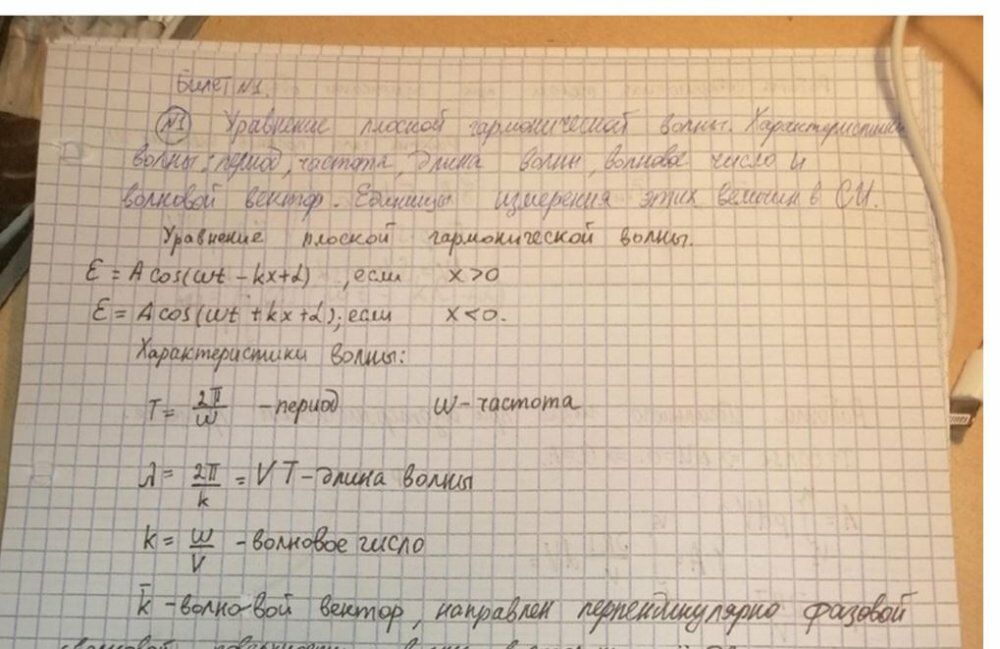 Билет №1.
№1 Уравнение плоской гармонической волны. Характеристики
волны: период, частота, длина волны, волновое число и
волновой вектор. Единицы измерения этих величин в СИ.
Уравнение плоской гармонической волны.
Ɛ = A cos(ωt - kx + α) , если x > 0
Ɛ = A cos(ωt + kx + α); если x < 0.
Характеристики волны:
T = 2π/ω - период ω - частота
λ = 2π/k = VT - длина волны
k = ω/V - волновое число
k̄ - волновой вектор, направлен перпендикулярно фазовой